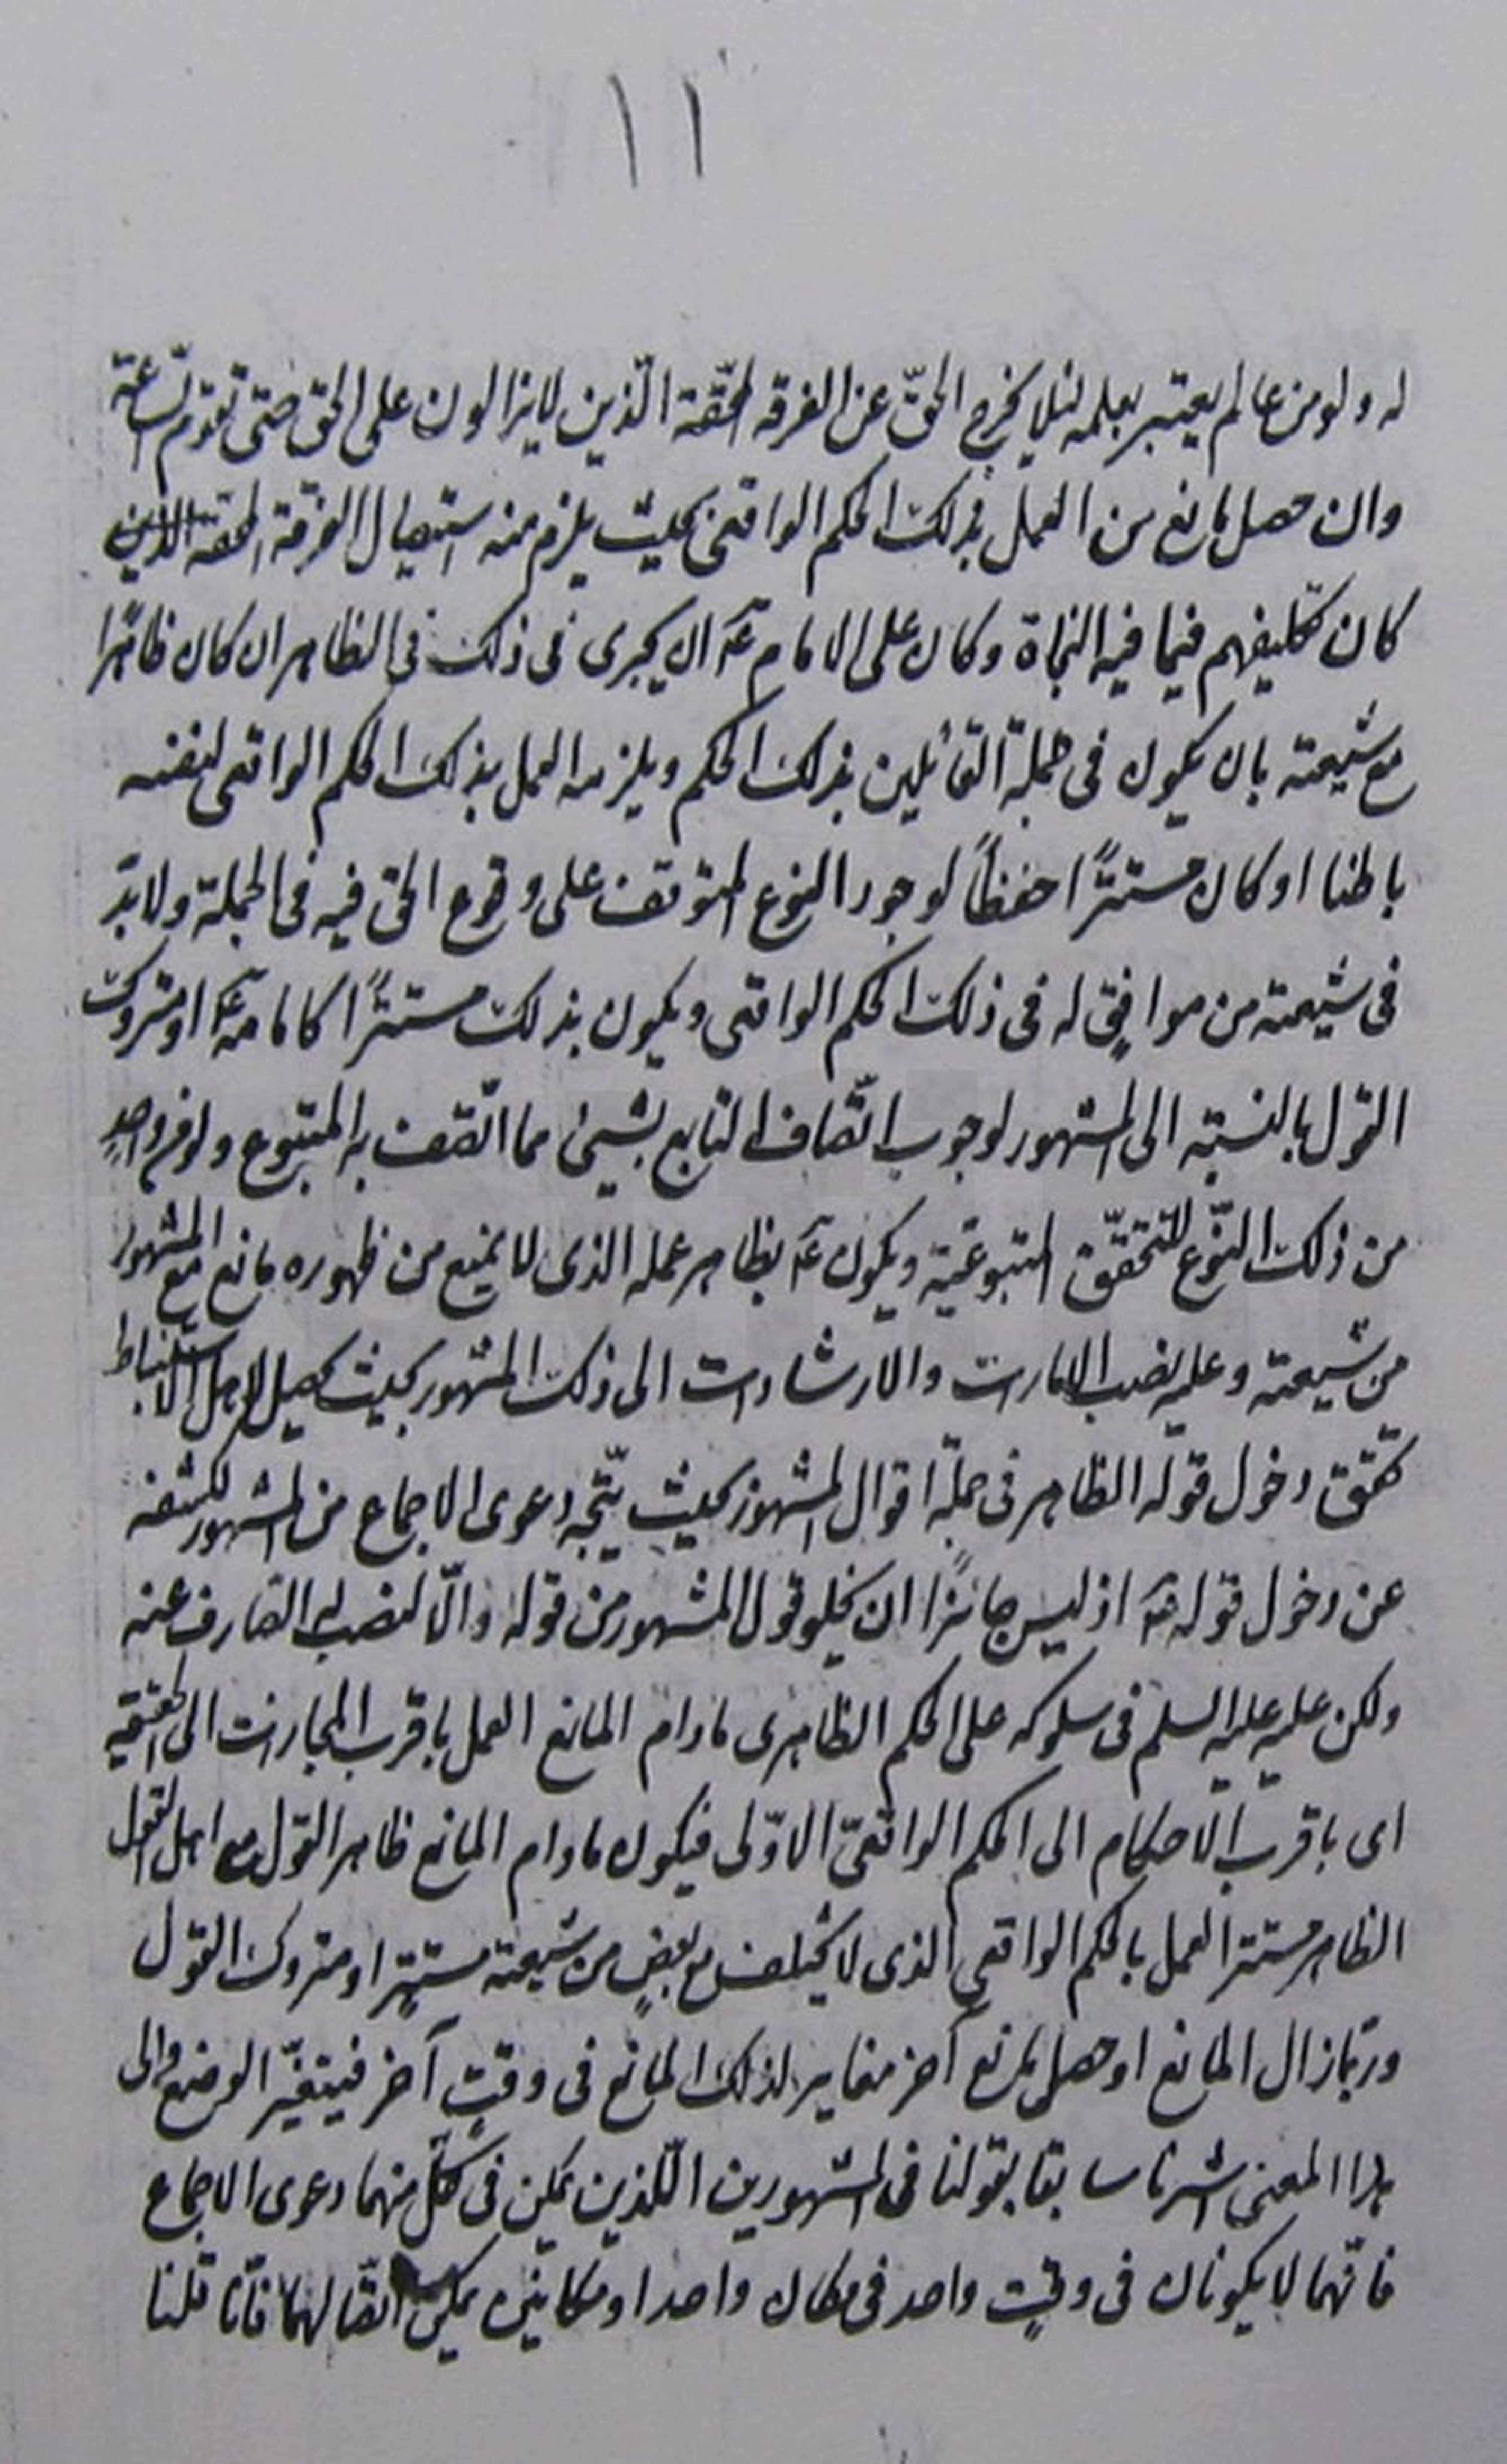 ١١
له ولو من عالم يعتبر بعلمه لئلا يخرج الحقّ عن الفرقه المحقّة الّذين لا يزالون على الحق حتى تقوم السّاعة
وان حصل مانع من العمل بذلك الحكم الواقعى بحيث يلزم منه استيصال الفرقة المحقة الذين
كان تكليفهم فيما فيه النجاة وكان على الامام عۤ ان يجرى فى ذلك فى الظاهر ان كان ظاهرًا
مع شيعته بان يكون فى جملة القائلين بذلك الحكم ويلزمه العمل بذلك الحكم الواقعى لنفسه
باطنا او كان مستترًا حفظاً لوجود النوع المتوقف على وقوع الحق فيه فى الجملة ولا بدّ
فى شيعته من موافقٍ له فى ذلك الحكم الواقعى ويكون بذلك مستترًا كامامه عۤ او متروك
القول بالنسبة الى المشهور لوجوب اتّصاف التابع بشىء مما اتّصف به المتبوع ولو فى واحدٍ
من ذلك النّوع لتحقّق المتبوعيّة ويكون عۤ بظاهر عمله الذى لا يمنع من ظهوره مانع مع المشهور
من شيعته وعليه نصب الامارات والارشادات الى ذلك المشهور بحيث يحصل لاهل الاستنباط
تحقق دخول قوله الظاهر فى جملة اقوال المشهور بحيث يتّجه دعوى الاجماع من المشهور لكشفه
عن دخول قوله عۤ اذ ليس جائزًا ان يخلو قول المشهور من قوله والّا لنصب الصارف عنه
ولكن عليه عليه السلم فى سلوكه على الحكم الظاهرى مادام المانع العمل باقرب المجازات الى الحقيقة
اى باقرب الاحكام الى الحكم الواقعىّ الاوّلى فيكون مادام المانع ظاهر القول مع اهل القول
الظاهر مستتر العمل بالحكم الواقعى الذى لا يختلف مع بعضٍ من شيعته مستترٍ او متروك القول
وربّما زال المانع او حصل مانع آخر مغاير لذلك المانع فى وقتٍ آخر فيتغيّر الوضع والى
هذا المعنى اشرنا سابقا بقولنا فى المشهورين اللّذين يمكن فى كلّ منهما دعوى الاجماع
فانّهما لا يكونان فى وقتٍ واحد فى مكان واحد او مكانين يمكن اتّصالهما فانّا قلنا